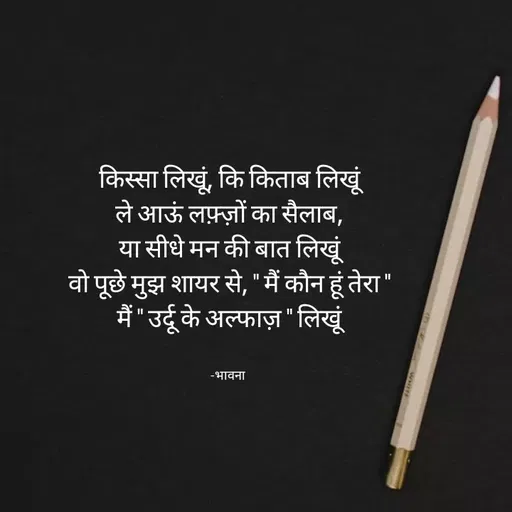 किस्सा लिखूं, कि किताब लिखूं
ले आऊं लफ़्ज़ों का सैलाब,
या सीधे मन की बात लिखूं
वो पूछे मुझ शायर से, " मैं कौन हूं तेरा "
मैं " उर्दू के अल्फाज़ " लिखूं
-भावना